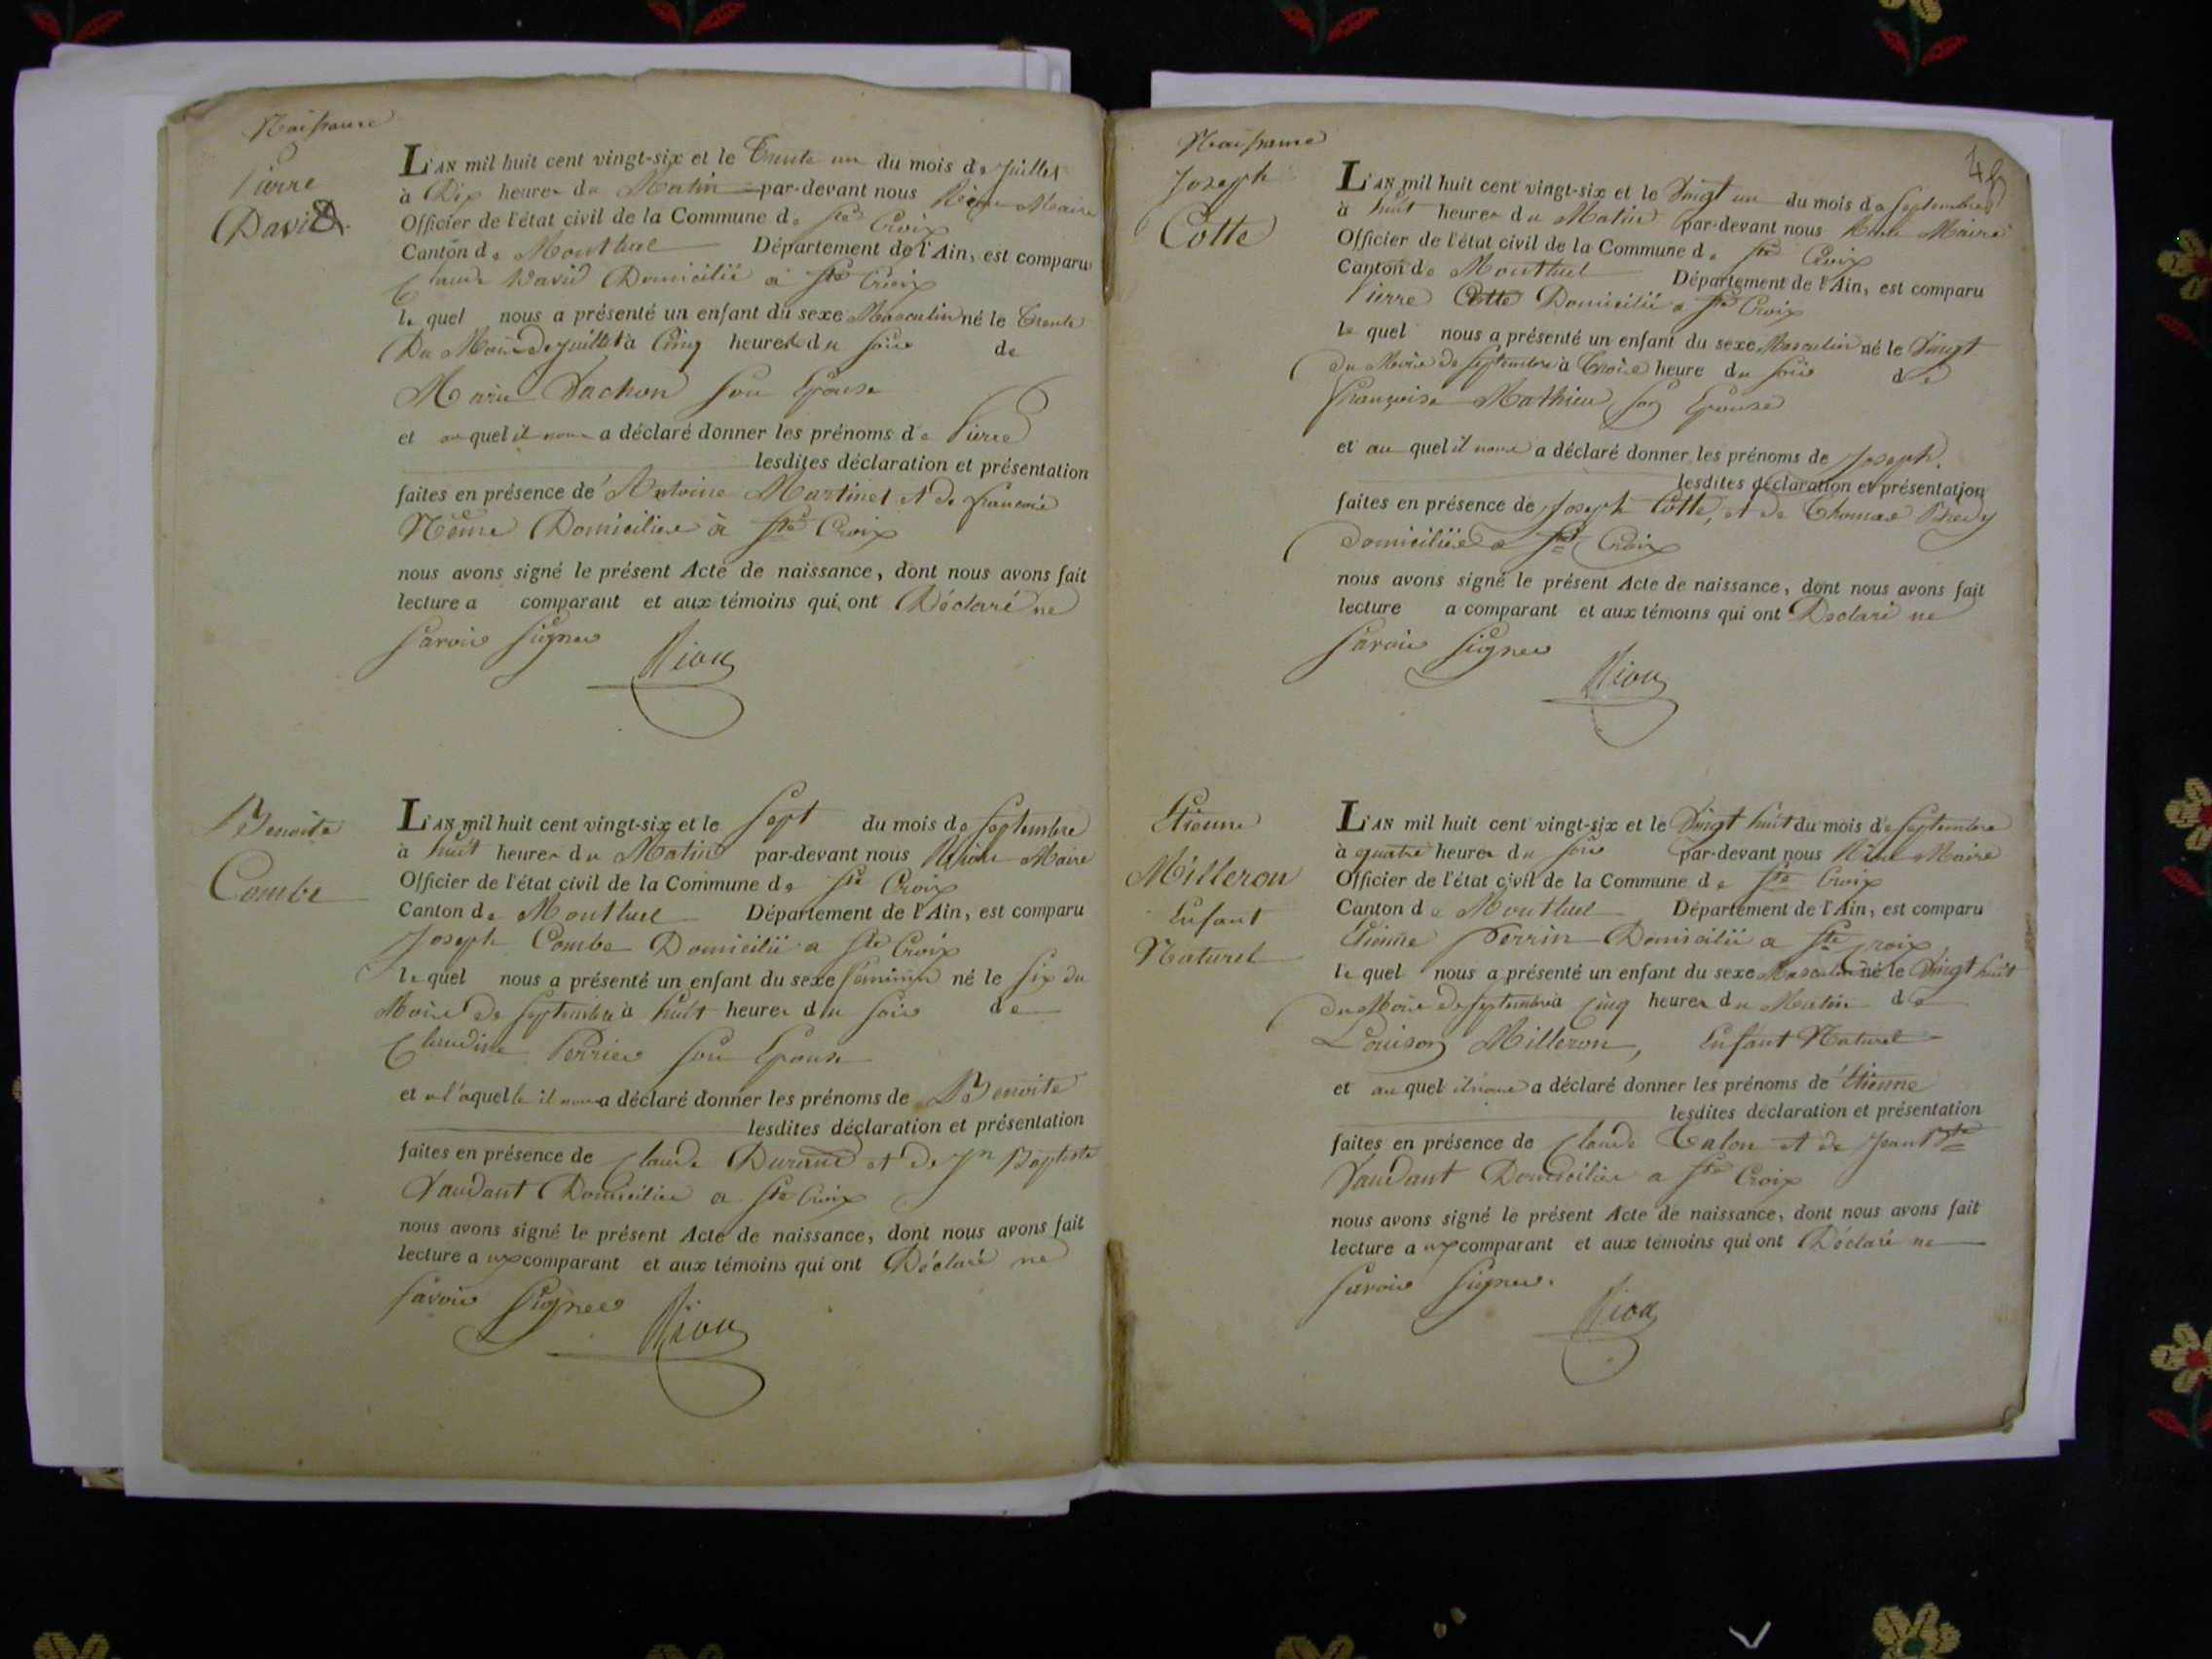 Naissance
Pierre
David
L'AN mil huit cent vingt-six et le Trente un du mois de Juillet
à Dix heures du Matin par-devant nous Maire
Officier de l'état civil de la Commune de Ste Croix
Canton de Montluel Département de l'Ain, est comparu
Claude David Domicilié à Ste Croix
le quel nous a présenté un enfant du sexe Masculin né le Trente
Du Mois de Juillet à Cinq heures du soir de
Marie Vachon son Epouse
et au quel il nous a déclaré donner les prénoms de Pierre
lesdites déclaration et présentation
faites en présence de Antoine Martinet et de francois
Nême Domiciliés à Ste Croix
nous avons signé le présent Acte de naissance, dont nous avons fait
lecture a comparant et aux témoins qui ont Déclaré ne
savoir signer
Benoite
Combe
L'AN mil huit cent vingt-six et le Sept du mois de Septembre
à huit heures du Matin par-devant nous Maire
Officier de l'état civil de la Commune de Ste Croix
Canton de Montluel Département de l'Ain, est comparu
Joseph Combe Domicilié a Ste Croix
le quel nous a présenté un enfant du sexe feminin né le Six du
Mois de Septembre à huit heures du soir de
Claudine Perrier son Epouse
et a l'aquelle il nous a déclaré donner les prénoms de Benoite
lesdites déclaration et présentation
faites en présence de Claude Durand et de Jn Baptiste
Vaudant Domiciliés a Ste Croix
nous avons signé le présent Acte de naissance, dont nous avons fait
lecture a ux comparant et aux témoins qui ont Déclaré ne
savoir signer
Naissance
Joseph
Cotte
L'AN mil huit cent vingt-six et le Vingt un du mois de Septembre
à huit heures du Matin par-devant nous Maire
Officier de l'état civil de la Commune de Ste Croix
Canton de Montluel Département de l'Ain, est comparu
Pierre Cotte Domicilié a Ste Croix
le quel nous a présenté un enfant du sexe Masculin né le Vingt
du Mois de Septembre à Trois heure du soir de
françoise Mathieu son Epouse
et au quel il nous a déclaré donner les prénoms de Joseph.
lesdites déclaration et présentation
faites en présence de Joseph Cotte, et de Thomas
domiciliés a Ste Croix
nous avons signé le présent Acte de naissance, dont nous avons fait
lecture a comparant et aux témoins qui ont Déclaré ne
savoir signer
Etienne
Milleron
Enfant
Naturel
L'AN mil huit cent vingt-six et le Vingt huit du mois de Septembre
à quatre heures du soir par-devant nous Maire
Officier de l'état civil de la Commune de Ste Croix
Canton de Montluel Département de l'Ain, est comparu
Etienne Perrin Domicilié a Ste Croix
le quel nous a présenté un enfant du sexe Masculin né le Vingt huit
du Mois de Septembre à Cinq heures du Matin de
Louison Milleron, Enfant Naturel
et au quel il nous a déclaré donner les prénoms de Etienne
lesdites déclaration et présentation
faites en présence de Claude Talon et de Jean Bte
Vaudant Domiciliés a Ste Croix
nous avons signé le présent Acte de naissance, dont nous avons fait
lecture a ux comparant et aux témoins qui ont Déclaré ne
savoir signer.